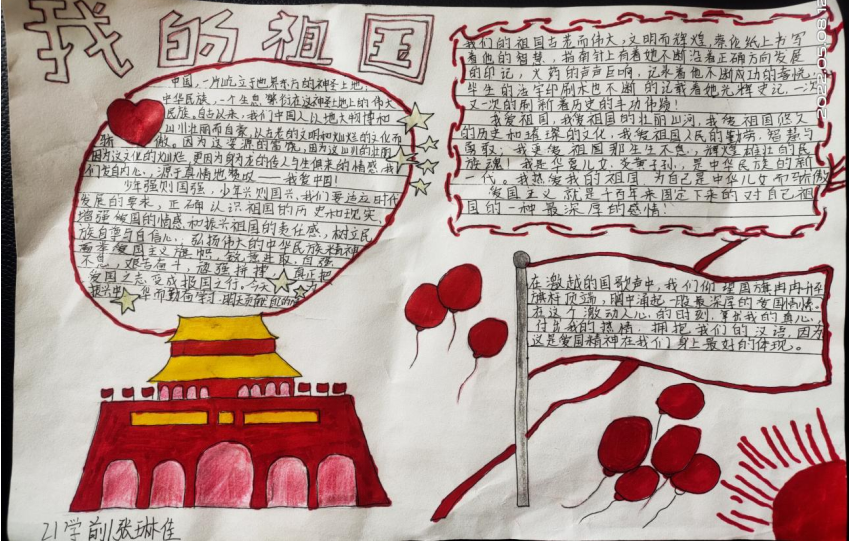 我的祖国
中国，一片屹立于世界东方的神圣土地，
中华民族，一个生息繁衍在这神圣土地上的伟大
民族。自古以来，我们中国人从地大物博和
山川壮丽而自豪，从古老的文明和灿烂的文化而
骄傲。因为这资源的富饶，因为这山川的壮丽，
因为这文化的灿烂，更因为身为龙的传人与生俱来的情感，我
们发自内心，源于真情地赞叹——我爱中国！
少年强则国强，少年兴则国兴，我们要适应时代
发展的要求，正确认识祖国的历史和现实，
增强爱国的情感和振兴祖国的责任感，树立民
族自尊与自信心；弘扬伟大的中华民族精神，
高举爱国主义旗帜，锐意进取，自强
不息，艰苦奋斗，顽强拼搏，真正把
爱国之志变成报国之行。今天为
振兴中华而勤奋学习，明天
我们的祖国古老而伟大，文明而辉煌，蔡伦纸上书写
着他的智慧，指南针上有着她不断沿着正确方向发展
的印记，火药的声声巨响，记录着他不断成功的喜悦，
毕生的活字印刷术也不断的记载着她光辉史记，一次
又一次的刷新着历史的丰功伟绩！
我爱祖国，我爱祖国的壮丽山河，我爱祖国悠久
的历史和璀璨的文化，我爱祖国人民的勤劳，智慧与
勇敢；我更爱祖国那生生不息，辉煌雄壮的民
族魂！我是华夏儿女，炎黄子孙，是中华民族的新
一代。我热爱我的祖国，为自己是中华儿女而骄傲
爱国主义就是千百年来固定下来的对自己祖
国的一种最深厚的感情！
在激越的国歌声中，我们仰望国旗冉冉升
旗杆顶端，胸中涌起一股最深厚的爱国情怀。
在这个激动人心的时刻，拿出我的真心，
付出我的热情，拥抱我们的汉语，因为
这是爱国精神在我们身上最好的体现。
21学前1张琳佳